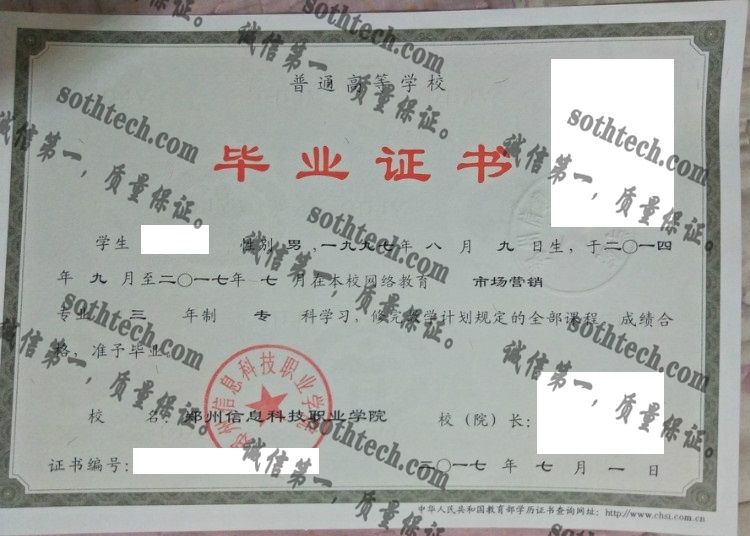 普通高等学校
毕业证书
学生 性别 男 ,一九九七年 八 月 九 日生, 于二〇一四
年 九 月至二〇一七年 七 月在本校网络教育 市场营销
专业 三 年制 专 科学习, 修完教学计划规定的全部课程, 成绩合
格, 准予毕业。
郑州信息科技职业学院
校 名: 郑州信息科技职业学院 校(院)长:
证书编号: 二〇一七 年 七 月 一 日
中华人民共和国教育部学历证书查询网址: http://www.chsi.com.cn
sothtech.com
诚信第一,质量保证。
sothtech.com
诚信第一,质量保证。
sothtech.com
诚信第一,质量保证。
sothtech.com
诚信第一,质量保证。
sothtech.com
诚信第一,质量保证。
sothtech.com
诚信第一,质量保证。
sothtech.com
诚信第一,质量保证。
sothtech.com
诚信第一,质量保证。
sothtech.com